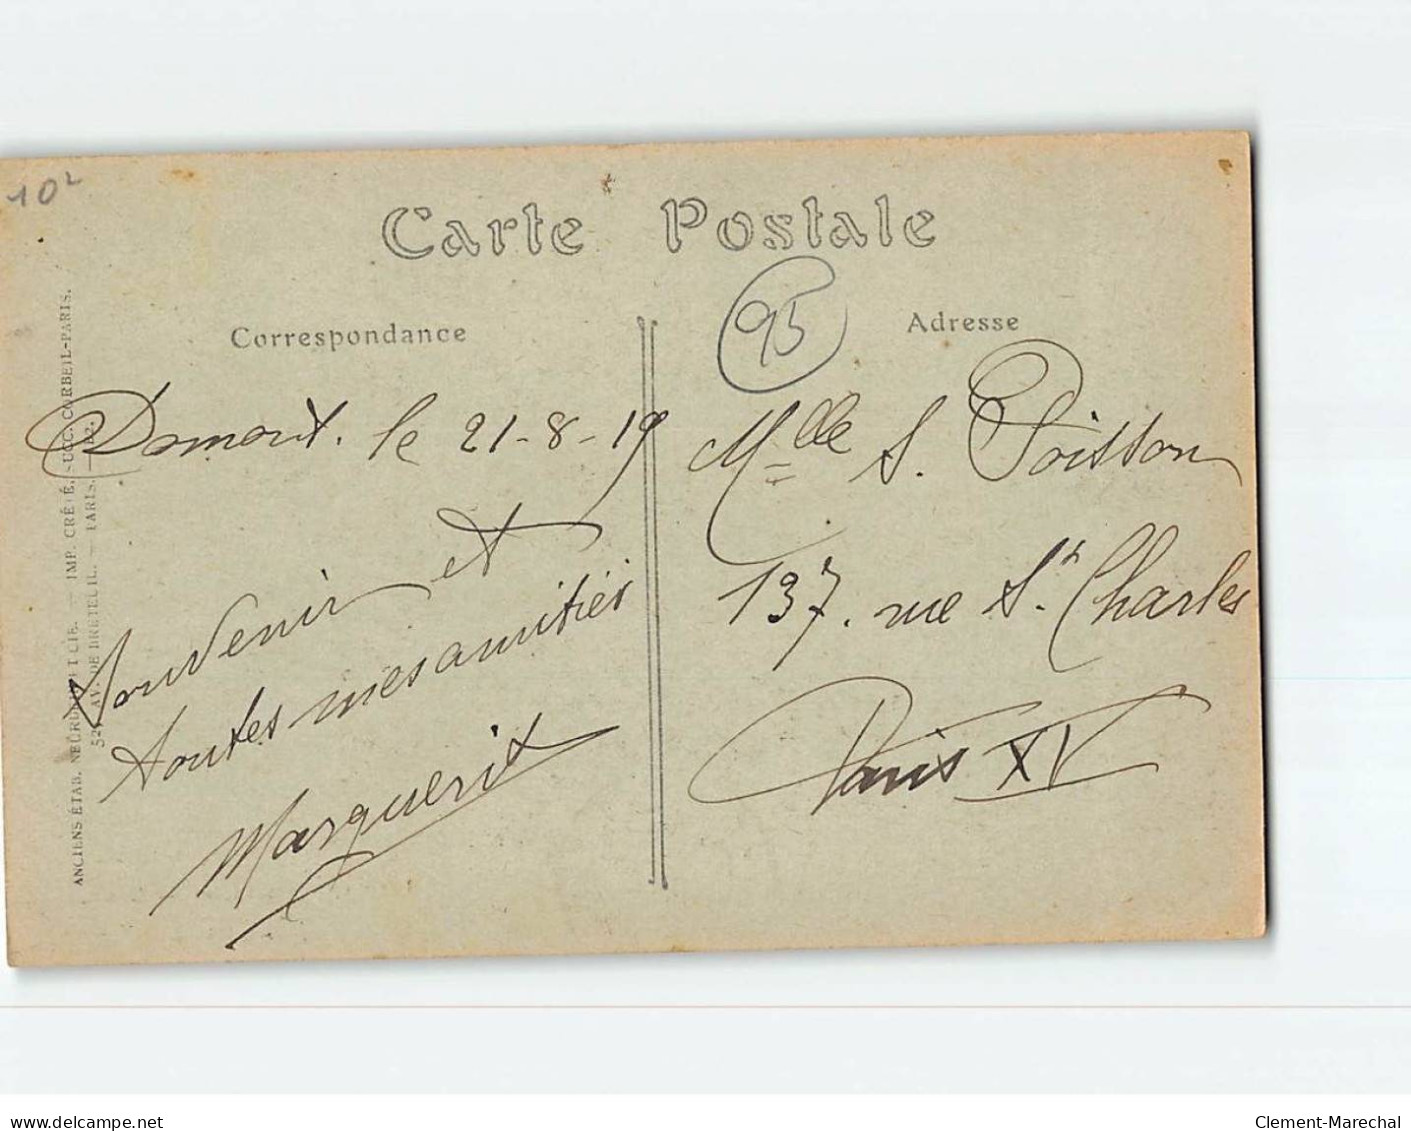 10²
Carte Postale
Correspondance
95
Adresse
Domont. le 21-8-19
Souvenir et
toutes mes amitiés
Marguerite
Mlle S. Poisson
137. rue St. Charles
Paris XV
ANCIENS ÉTAB. NEURDEIN ET CIE. — IMP. CRÉTÉ. SUCC. CORBEIL-PARIS.
52, AV. DE BRETEUIL. — PARIS.
delcampe.net
Clement-Marechal